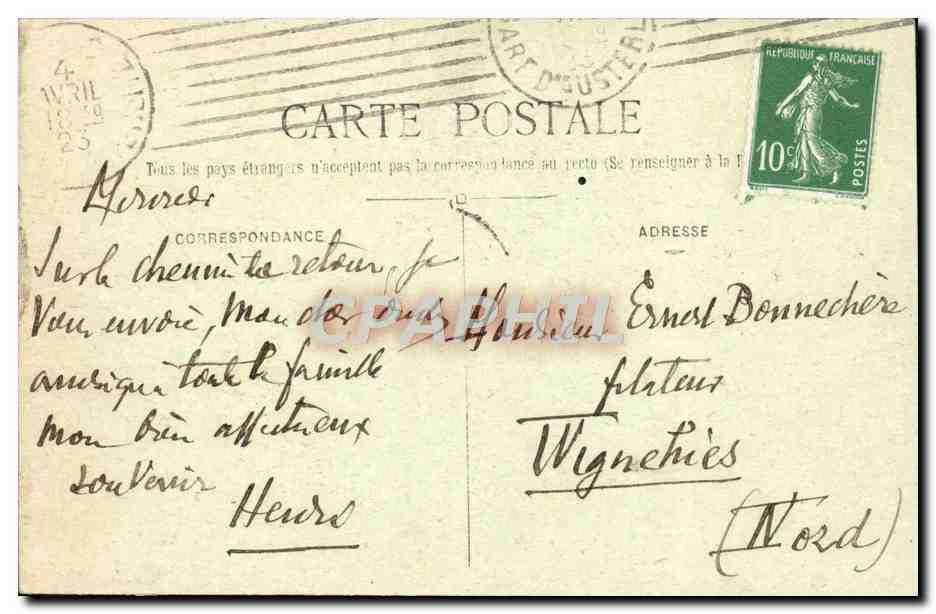 4
AVRIL
23
GARE D'AUSTERL
CARTE POSTALE
Tous les pays étrangers n'acceptent pas la correspondance au recto (Se renseigner à la
REPUBLIQUE FRANÇAISE
10c
POSTES
CORRESPONDANCE
Sur le chemin de retour, je
Vous envoie, mon cher
ainsi qu'à toute la famille
mon bien affectueux
souvenir
Henri
ADRESSE
Monsieur Ernest Bonnechère
filateur
Wignehies
(Nord)
CPAPHIL